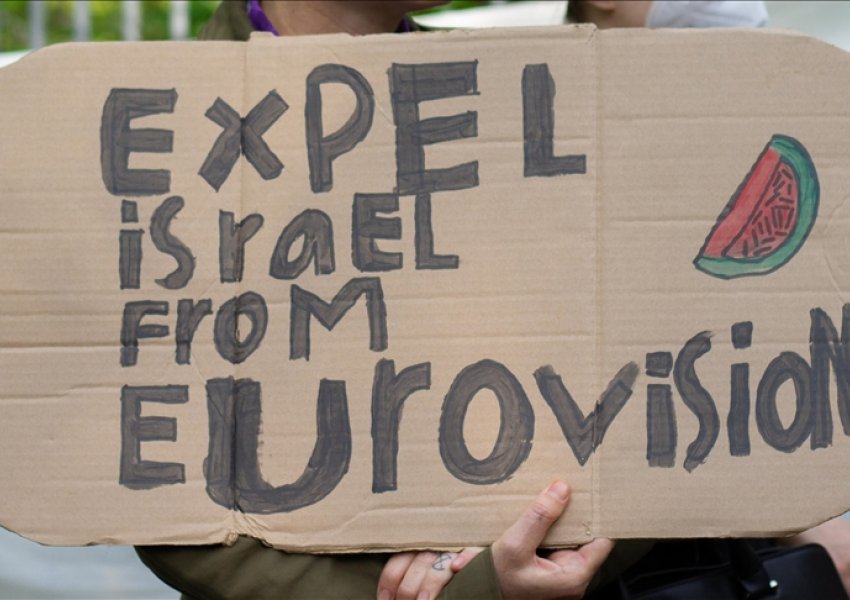 EXPEL
israEL
From
EUroviSiON